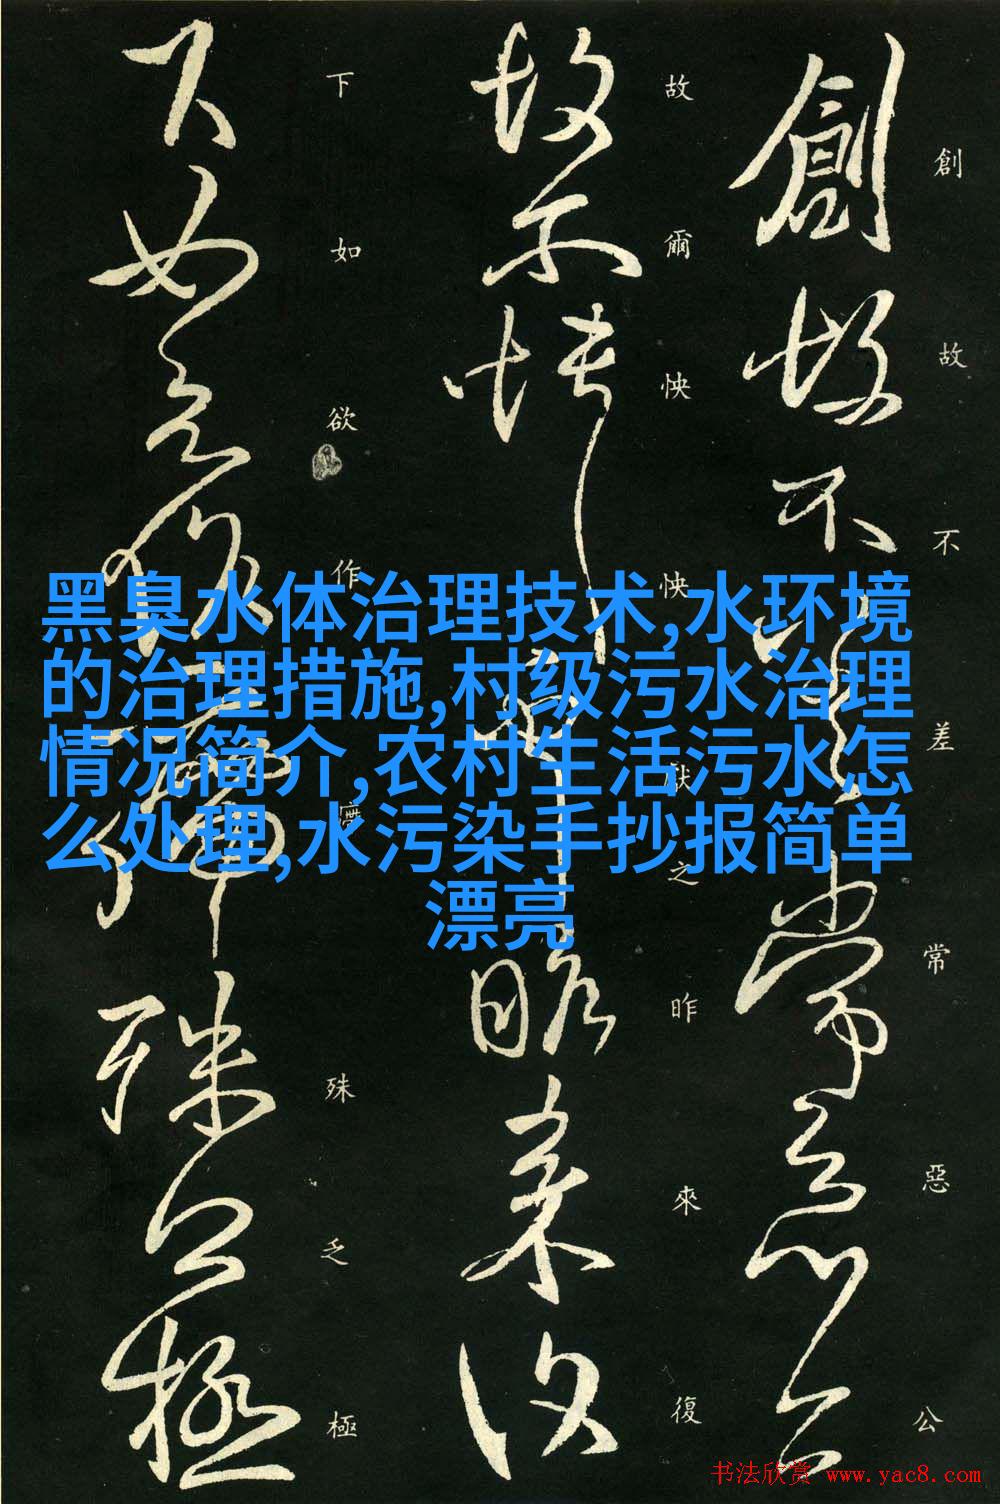 創故不差常惡公
故爾怏怏献之昨來復
下如欲作殊乏極
黑臭水体治理技术,水环境
的治理措施,村级污水治理
情况简介,农村生活污水怎
么处理,水污染手抄报简单
漂亮
书法欣赏 www.yac8.com